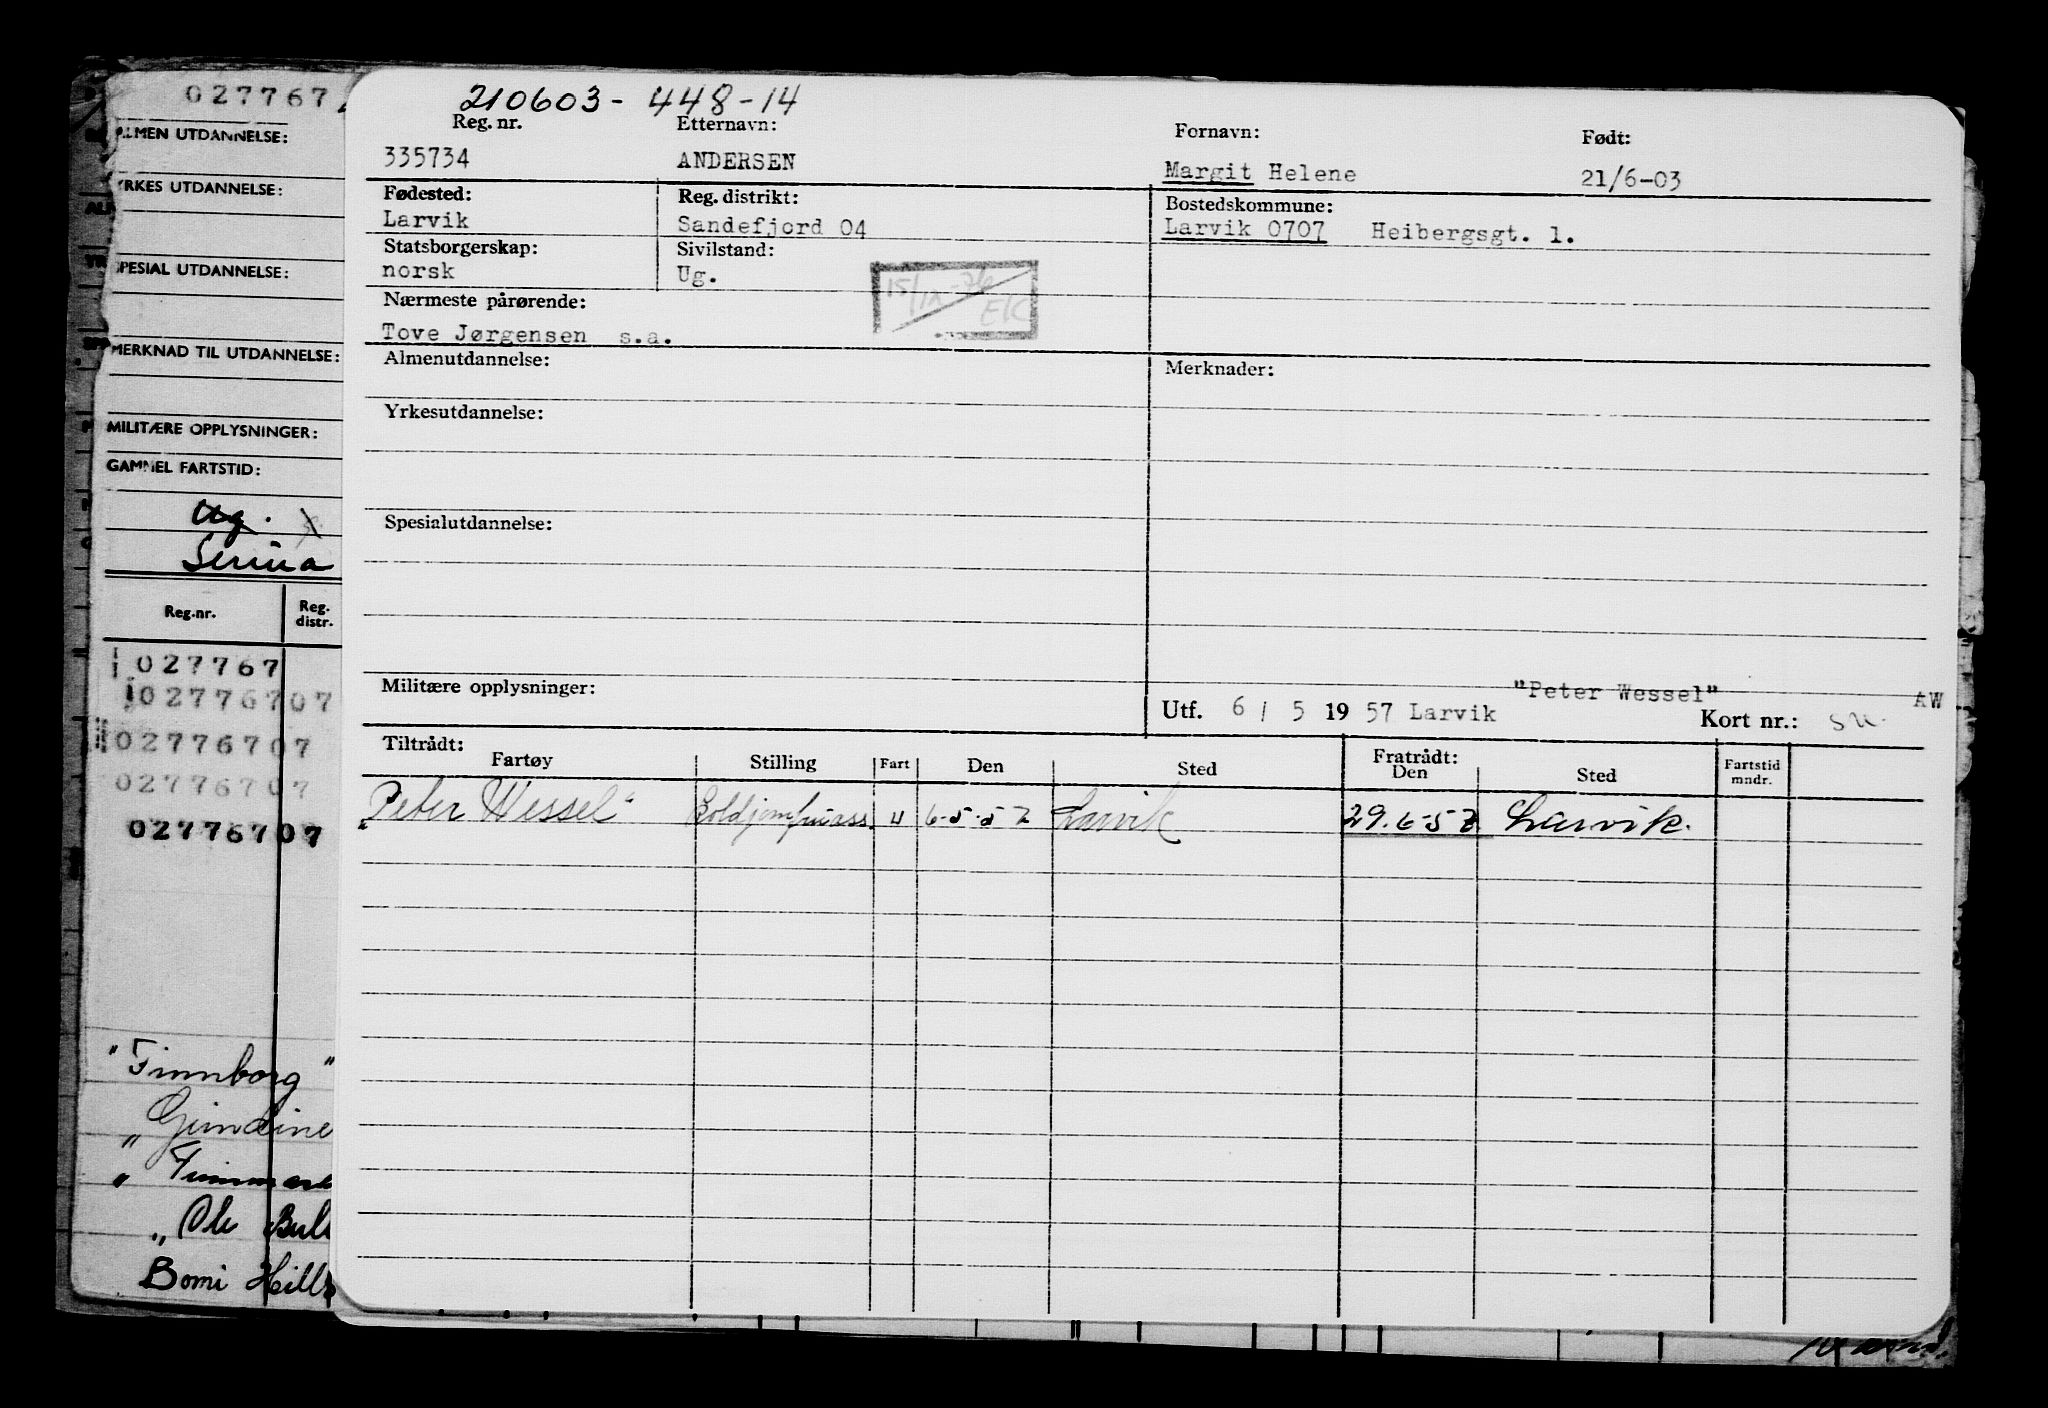 027767
ALMEN UTDANNELSE:
YRKES UTDANNELSE:
SPESIAL UTDANNELSE:
MERKNAD TIL UTDANNELSE:
MILITÆRE OPPLYSNINGER:
GAMMEL FARTSTID:
Ug.
Reg.nr. Reg. distr.
027767
02776707
02776707
02776707
02776707
"Finnborg"
"
"
„Ole Bul
Bomi Hills
210603-448-14
Reg. nr. Etternavn: Fornavn: Født:
335734 ANDERSEN Margit Helene 21/6-03
Fødested: Reg. distrikt: Bostedskommune:
Larvik Sandefjord 04 Larvik 0707 Heibergsgt. 1.
Statsborgerskap: Sivilstand:
norsk Ug.
15/12-76 EK
Nærmeste pårørende:
Tove Jørgensen s.a.
Almenutdannelse: Merknader:
Yrkesutdannelse:
Spesialutdannelse:
Militære opplysninger:
"Peter Wessel" AW
Utf. 6 / 5 19 57 Larvik Kort nr.:
Tiltrådt: Fratrådt:
Fartøy Stilling Fart Den Sted Den Sted Fartstid mndr.
"Peter Wessel" 6-5-57 Larvik 29.6-57 Larvik.